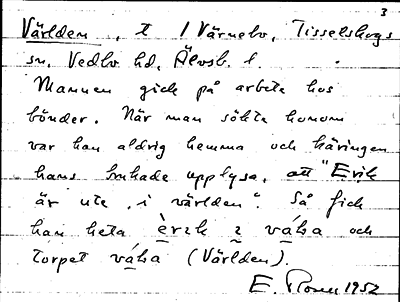 3
Världen, t. / Värnebo, Tisselskogs
sn, Vedbo hd, Älvsb. l.
Mannen gick på arbete hos
bönder. När man sökte honom
var han aldrig hemma och käringen
hans brukade upplysa, att "Erik
är ute i världen". Så fick
han heta è̱rɪk ɪ vá̱ḷa och
torpet vá̱ḷa (Världen).
E. Rosen 1952